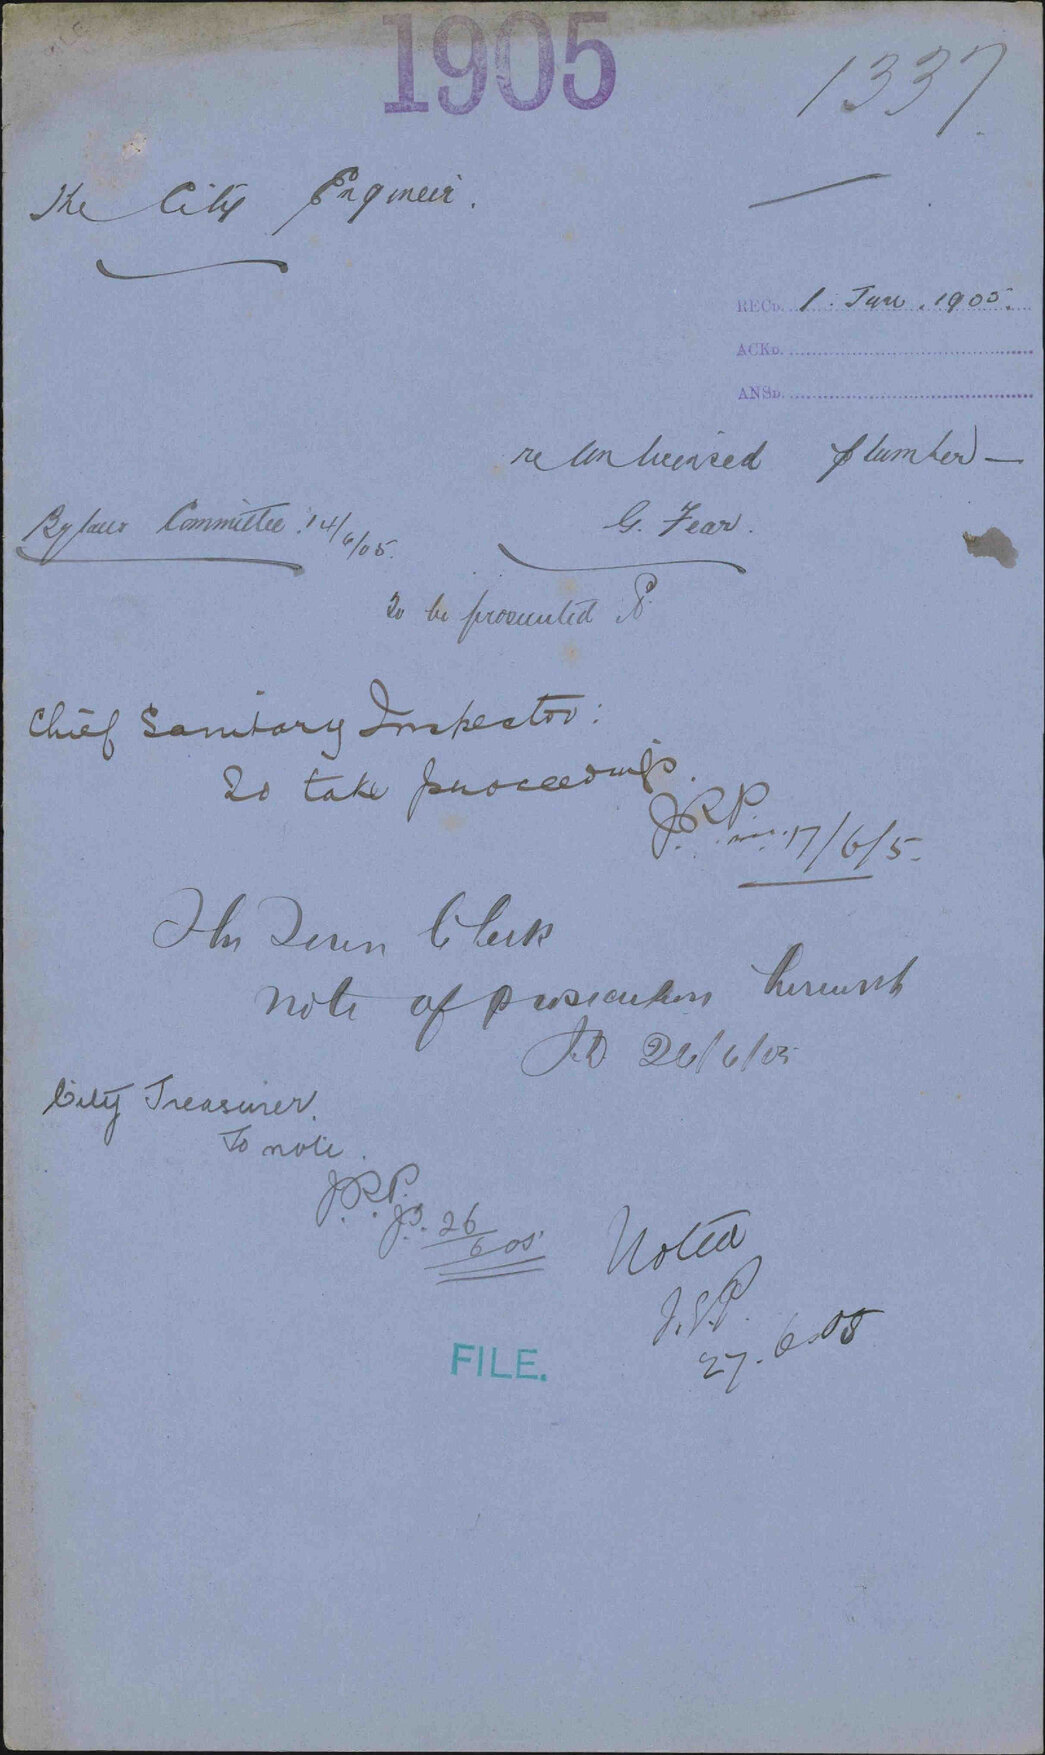 1905
1337
The City Engineer.
RECD. 1. Jun. 1905.
ACKD.
ANSD.
re Unlicensed Plumber —
G. Fear.
Bylaws Committee 14/6/05.
To be prosecuted
Chief Sanitary Inspector:
To take proceedings.
J.R.P. 17/6/5.
The Town Clerk
Note of prosecution herewith
26/6/05
City Treasurer.
To note.
J.R.P.
26/6 05
Noted
27.6.05
FILE.